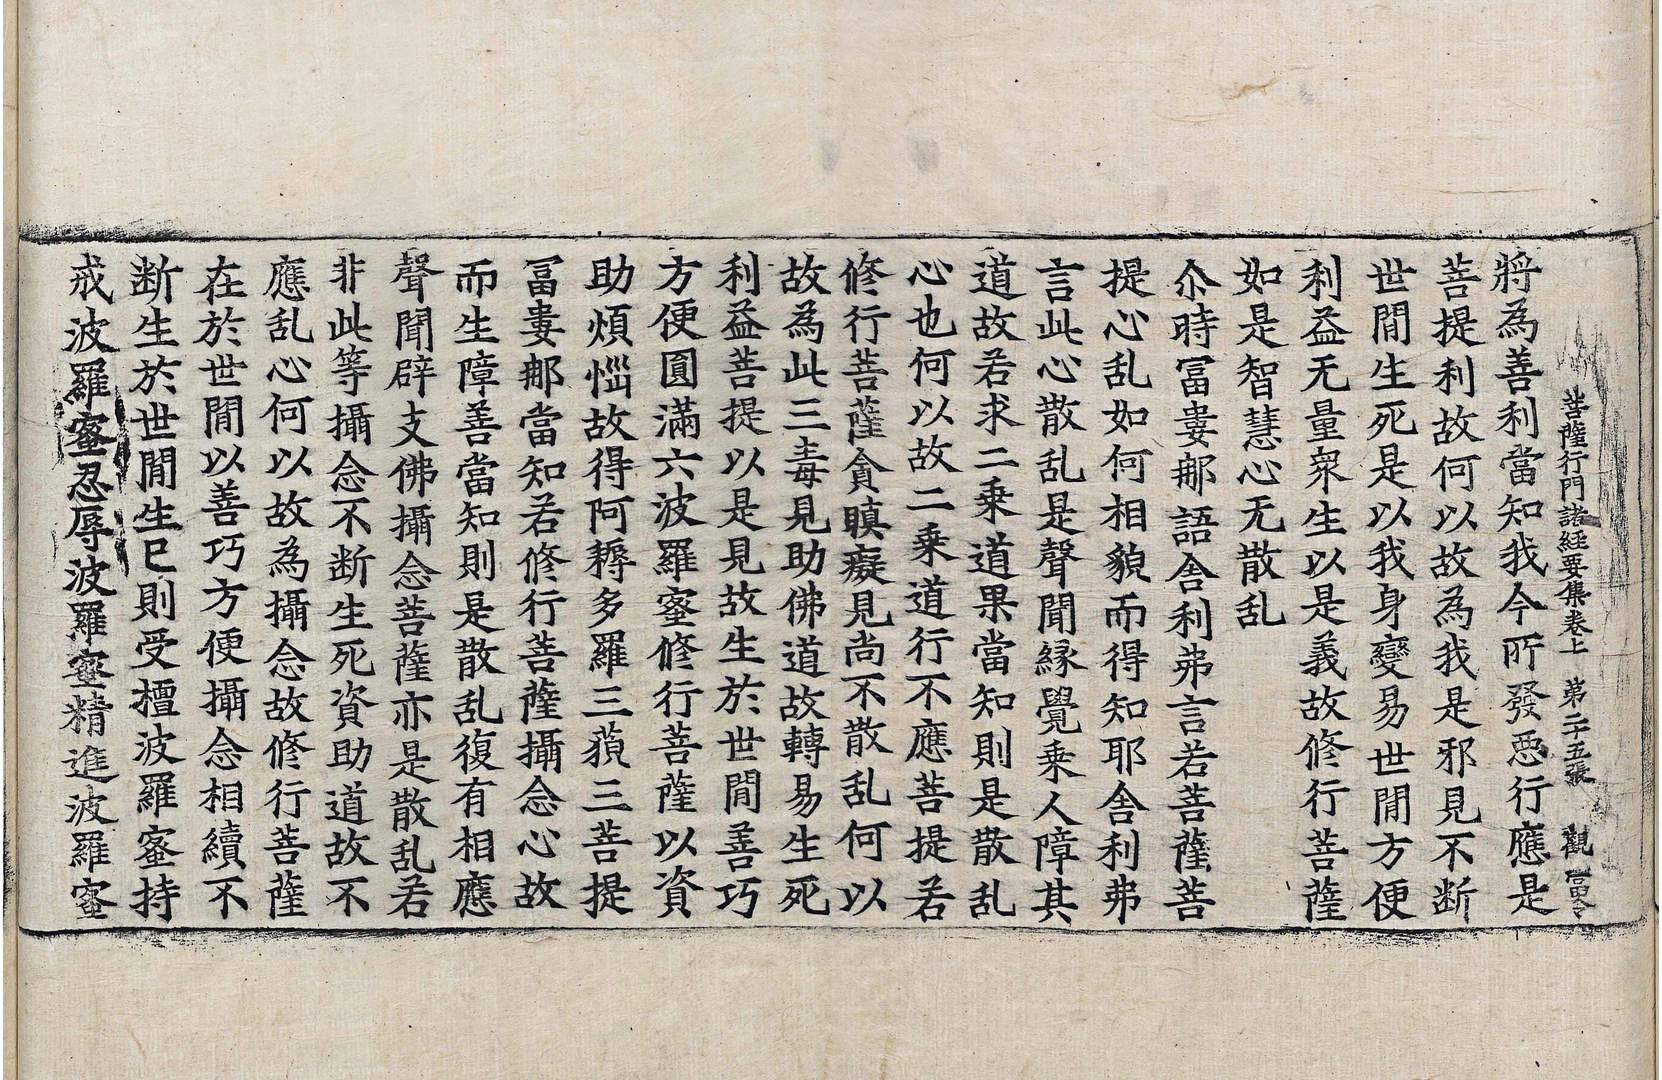 菩薩行門諸經要集卷上　第二十五張　觀　冨令
將為善利當知我今所發惡行應是
菩提利故何以故為我是邪見不断
世間生死是以我身變易世間方便
利益无量衆生以是義故修行菩薩
如是智慧心无散乱
尒時冨婁那語舍利弗言若菩薩菩
提心乱如何相貌而得知耶舍利弗
言此心散乱是聲聞緣覺乗人障其
道故若求二乗道果當知則是散乱
心也何以故二乗道行不應菩提若
修行菩薩貪瞋癡見尚不散乱何以
故為此三毒見助佛道故轉易生死
利益菩提以是見故生於世間善巧
方便圓滿六波羅蜜修行菩薩以資
助煩惱故得阿耨多羅三藐三菩提
冨婁那當知若修行菩薩攝念心故
而生障善當知則是散乱復有相應
聲聞辟支佛攝念菩薩亦是散乱若
非此等攝念不断生死資助道故不
應乱心何以故為攝念故修行菩薩
在於世間以善巧方便攝念相續不
断生於世間生已則受檀波羅蜜持
戒波羅蜜忍辱波羅蜜精進波羅蜜